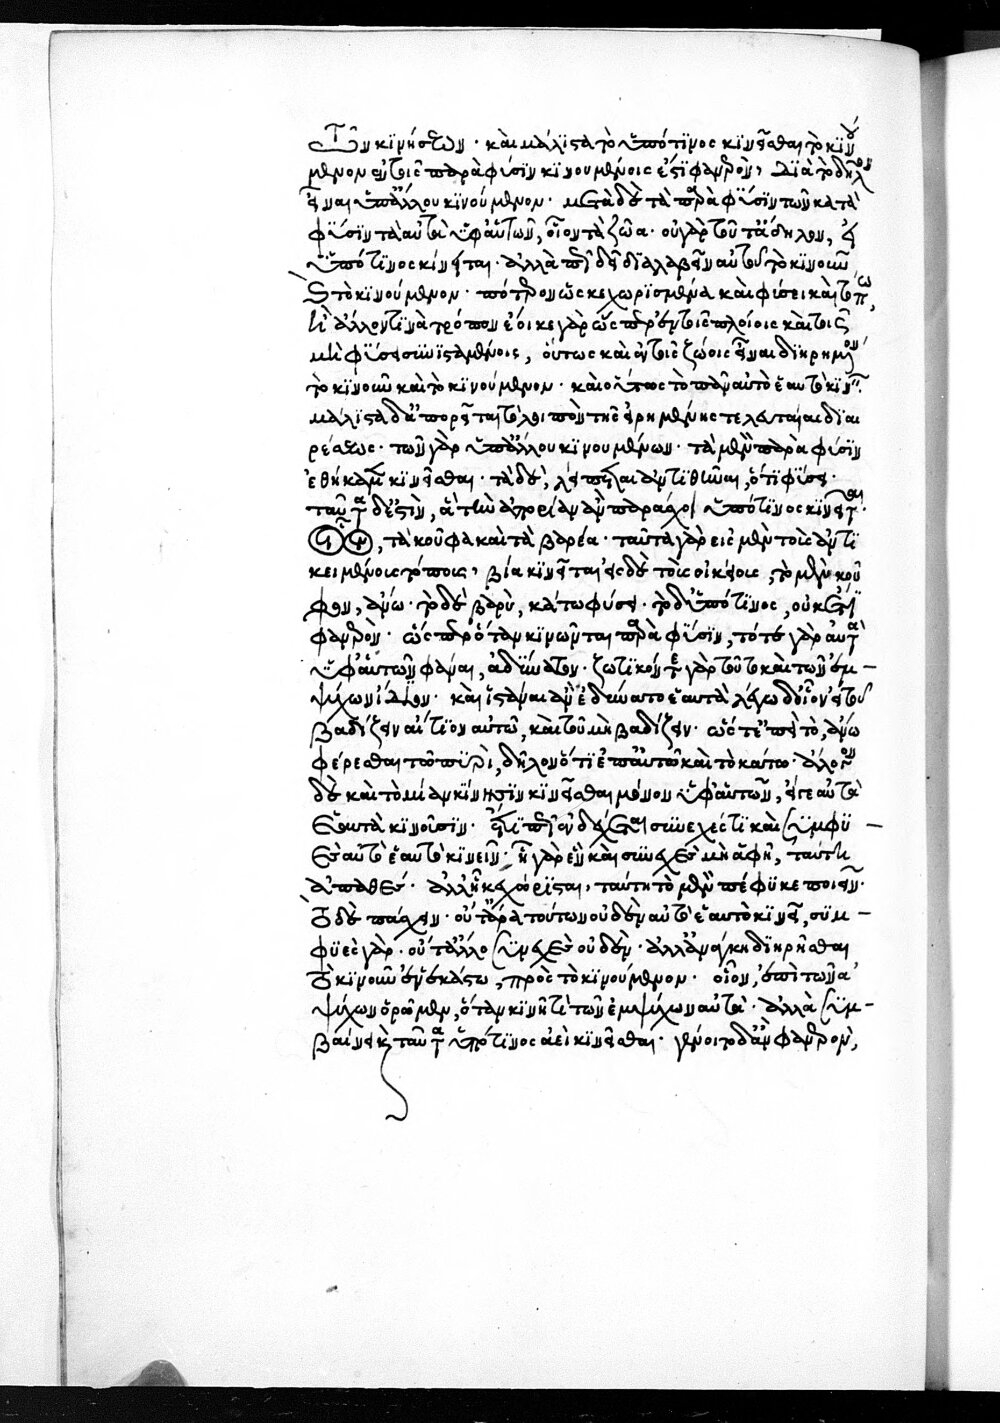 τὴν κίνησιν. καὶ μάλιστα τὸ ὑπό τινος κινεῖσθαι τὸ κινού
μενον ἐν τοῖς παρὰ φύσιν κινουμένοις ἐστὶ φανερόν, διὰ τὸ δῆλον
εἶναι ὑπ' ἄλλου κινούμενον. μετὰ δὲ τὰ παρὰ φύσιν τῶν κατὰ
φύσιν τὰ αὐτὰ ὑφ' αὑτῶν, οἷον τὰ ζῷα. οὐ γὰρ τοῦτ' ἄδηλον, εἰ
ὑπό τινος κινεῖται. ἀλλὰ πῶς δεῖ διαλαβεῖν αὐτοῦ τὸ κινοῦν
καὶ τὸ κινούμενον. πότερον ὡς κεχωρισμένα καὶ φύσει καὶ τόπῳ,
ἢ ἄλλον τινὰ τρόπον ἔοικε γὰρ ὥσπερ ἐν τοῖς πλοίοις καὶ τοῖς
μὴ φύσει συνισταμένοις, οὕτως καὶ ἐν τοῖς ζῴοις εἶναι διῃρημένον
τὸ κινοῦν καὶ τὸ κινούμενον. καὶ οὕτως τὸ πᾶν αὐτὸ ἑαυτὸ κινεῖν.
μάλιστα δ' ἀπορεῖται τὸ λοιπὸν τῆς εἰρημένης τελευταίας διαι
ρέσεως. τῶν γὰρ ὑπ' ἄλλου κινουμένων. τὰ μὲν παρὰ φύσιν
ἐθήκαμεν κινεῖσθαι. τὰ δὲ, λείπεται ἀντιθεῖναι, ὅτι φύσει.
ταῦτα δ' ἐστὶν, ἃ τὴν ἀπορίαν ἂν παράσχοι ὑπό τινος κινεῖται.
οἷον, τὰ κοῦφα καὶ τὰ βαρέα. ταῦτα γὰρ εἰς μὲν τοὺς ἀντι
κειμένους τόπους, βίᾳ κινεῖται εἰς δὲ τοὺς οἰκείους, τὸ μὲν κοῦ
φον, ἄνω. τὸ δὲ βαρὺ, κάτω φύσει. τὸ δ' ὑπό τινος, οὐκέτι
φανερόν. ὥσπερ ὅταν κινῶνται παρὰ φύσιν, τό τε γὰρ αὐτὰ
ὑφ' αὑτῶν φάναι, ἀδύνατον. ζωτικόν τε γὰρ τοῦτο καὶ τῶν ἐμ
ψύχων ἴδιον. καὶ ἱστάναι ἂν ἐδύνατο ἑαυτὰ λέγω δ' οἷον εἰ τοῦ
βαδίζειν αἴτιον αὑτῷ, καὶ τοῦ μὴ βαδίζειν. ὥστε ἐπεὶ τὸ, ἄνω
φέρεσθαι τῷ πυρὶ, δῆλον ὅτι ἐπ' αὐτῷ καὶ τὸ κάτω. ἄλογον
δὲ καὶ τὸ μίαν κίνησιν κινεῖσθαι μόνον ὑφ' αὑτῶν, εἴγε αὐτὰ
ἑαυτὰ κινοῦσιν. ἔτι πῶς ἐνδέχεται συνεχές τι καὶ συμφυ
ὲς αὐτὸ ἑαυτὸ κινεῖν. ᾗ γὰρ ἓν καὶ συνεχὲς μὴ ἁφῇ, ταύτῃ
ἀπαθές. ἀλλ' ᾗ κεχώρισται, ταύτῃ τὸ μὲν πέφυκε ποιεῖν.
τὸ δὲ πάσχειν. οὔτ' ἄρα τούτων οὐδὲν αὐτὸ ἑαυτὸ κινεῖ, συμ
φυὲς γάρ. οὔτ' ἄλλο συνεχὲς οὐδὲν. ἀλλ' ἀνάγκη διῃρῆσθαι
τὸ κινοῦν ἐν ἑκάστῳ, πρὸς τὸ κινούμενον. οἷον, ἐπὶ τῶν ἀ
ψύχων ὁρῶμεν, ὅταν κινῇ τι τῶν ἐμψύχων αὐτά. ἀλλὰ συμ
βαίνει καὶ ταῦτα ὑπό τινος ἀεὶ κινεῖσθαι. γένοιτο δ' ἂν φανερὸν,